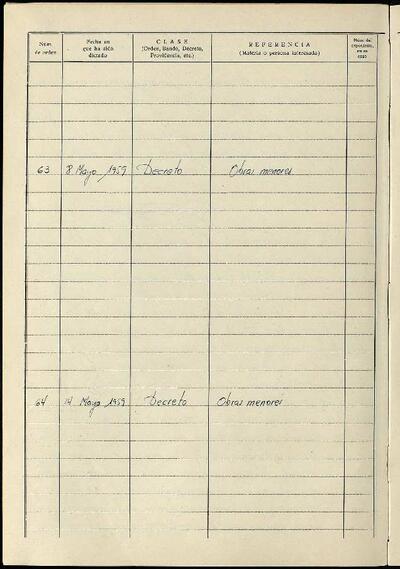 Núm. de orden
Fecha en que ha sido dictado
CLASE
(Orden, Bando, Decreto, Providencia, etc.)
REFERENCIA
(Materia o persona interesada)
Núm. del expediente, en su caso
63 8 Mayo 1959 Decreto Obras menores
64 Mayo 1959 Decreto Obras menores